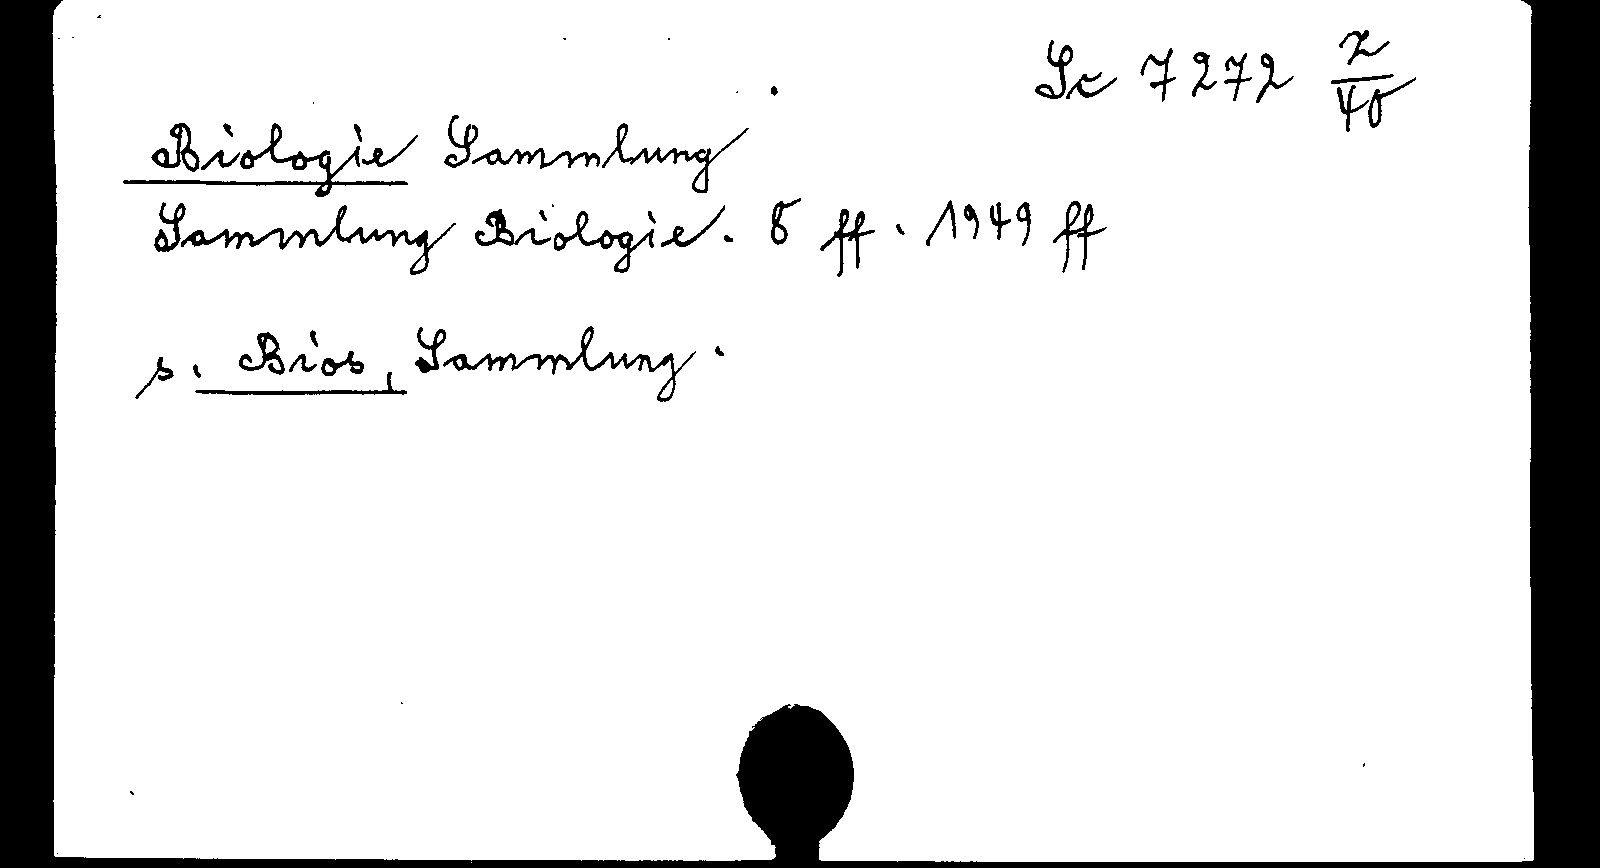 Sc 7272 z/40
Biologie Sammlung
Sammlung Biologie. 8 ff. 1949 ff
s. Bios, Sammlung.